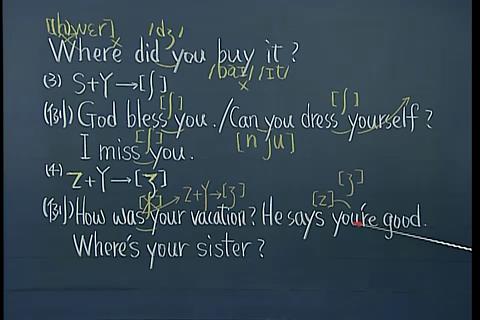 [hwɛr] /dʒ/
Where did you buy it?
/baɪ/ /ɪt/
(3) S+Y→[ʃ]
[ʃ] [ʃ]
(例) God bless you. / Can you dress yourself?
[ʃ] [n ju]
I miss you.
(4) Z+Y→[ʒ]
Z+Y→[ʒ] [z] [ʒ]
(例) How was your vacation? He says you're good.
Where's your sister?